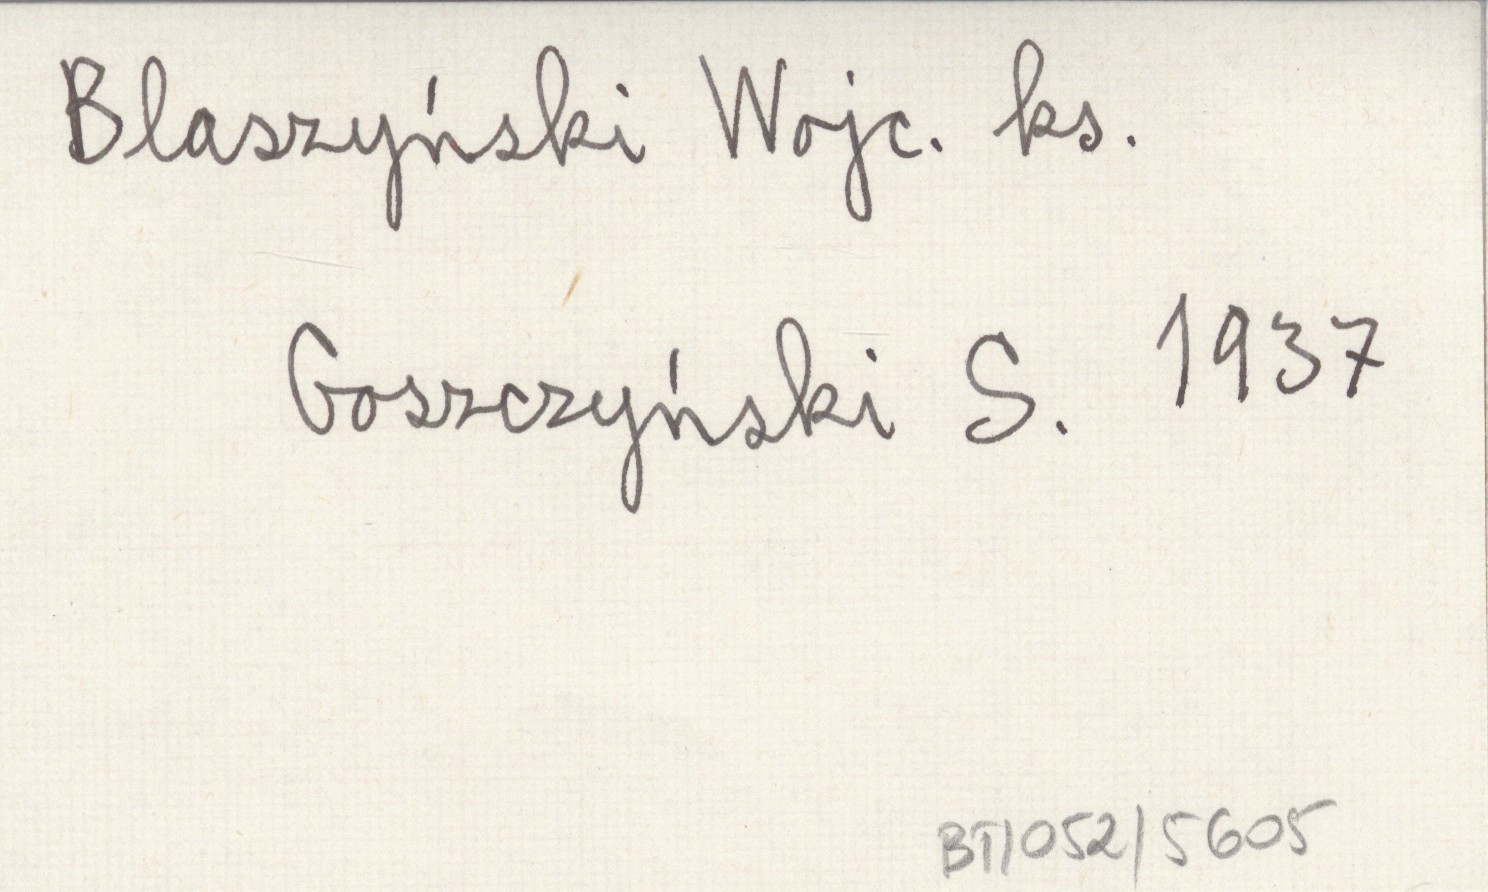 Blaszyński Wojc. ks.
Goszczyński S. 1937
BT/052/5605